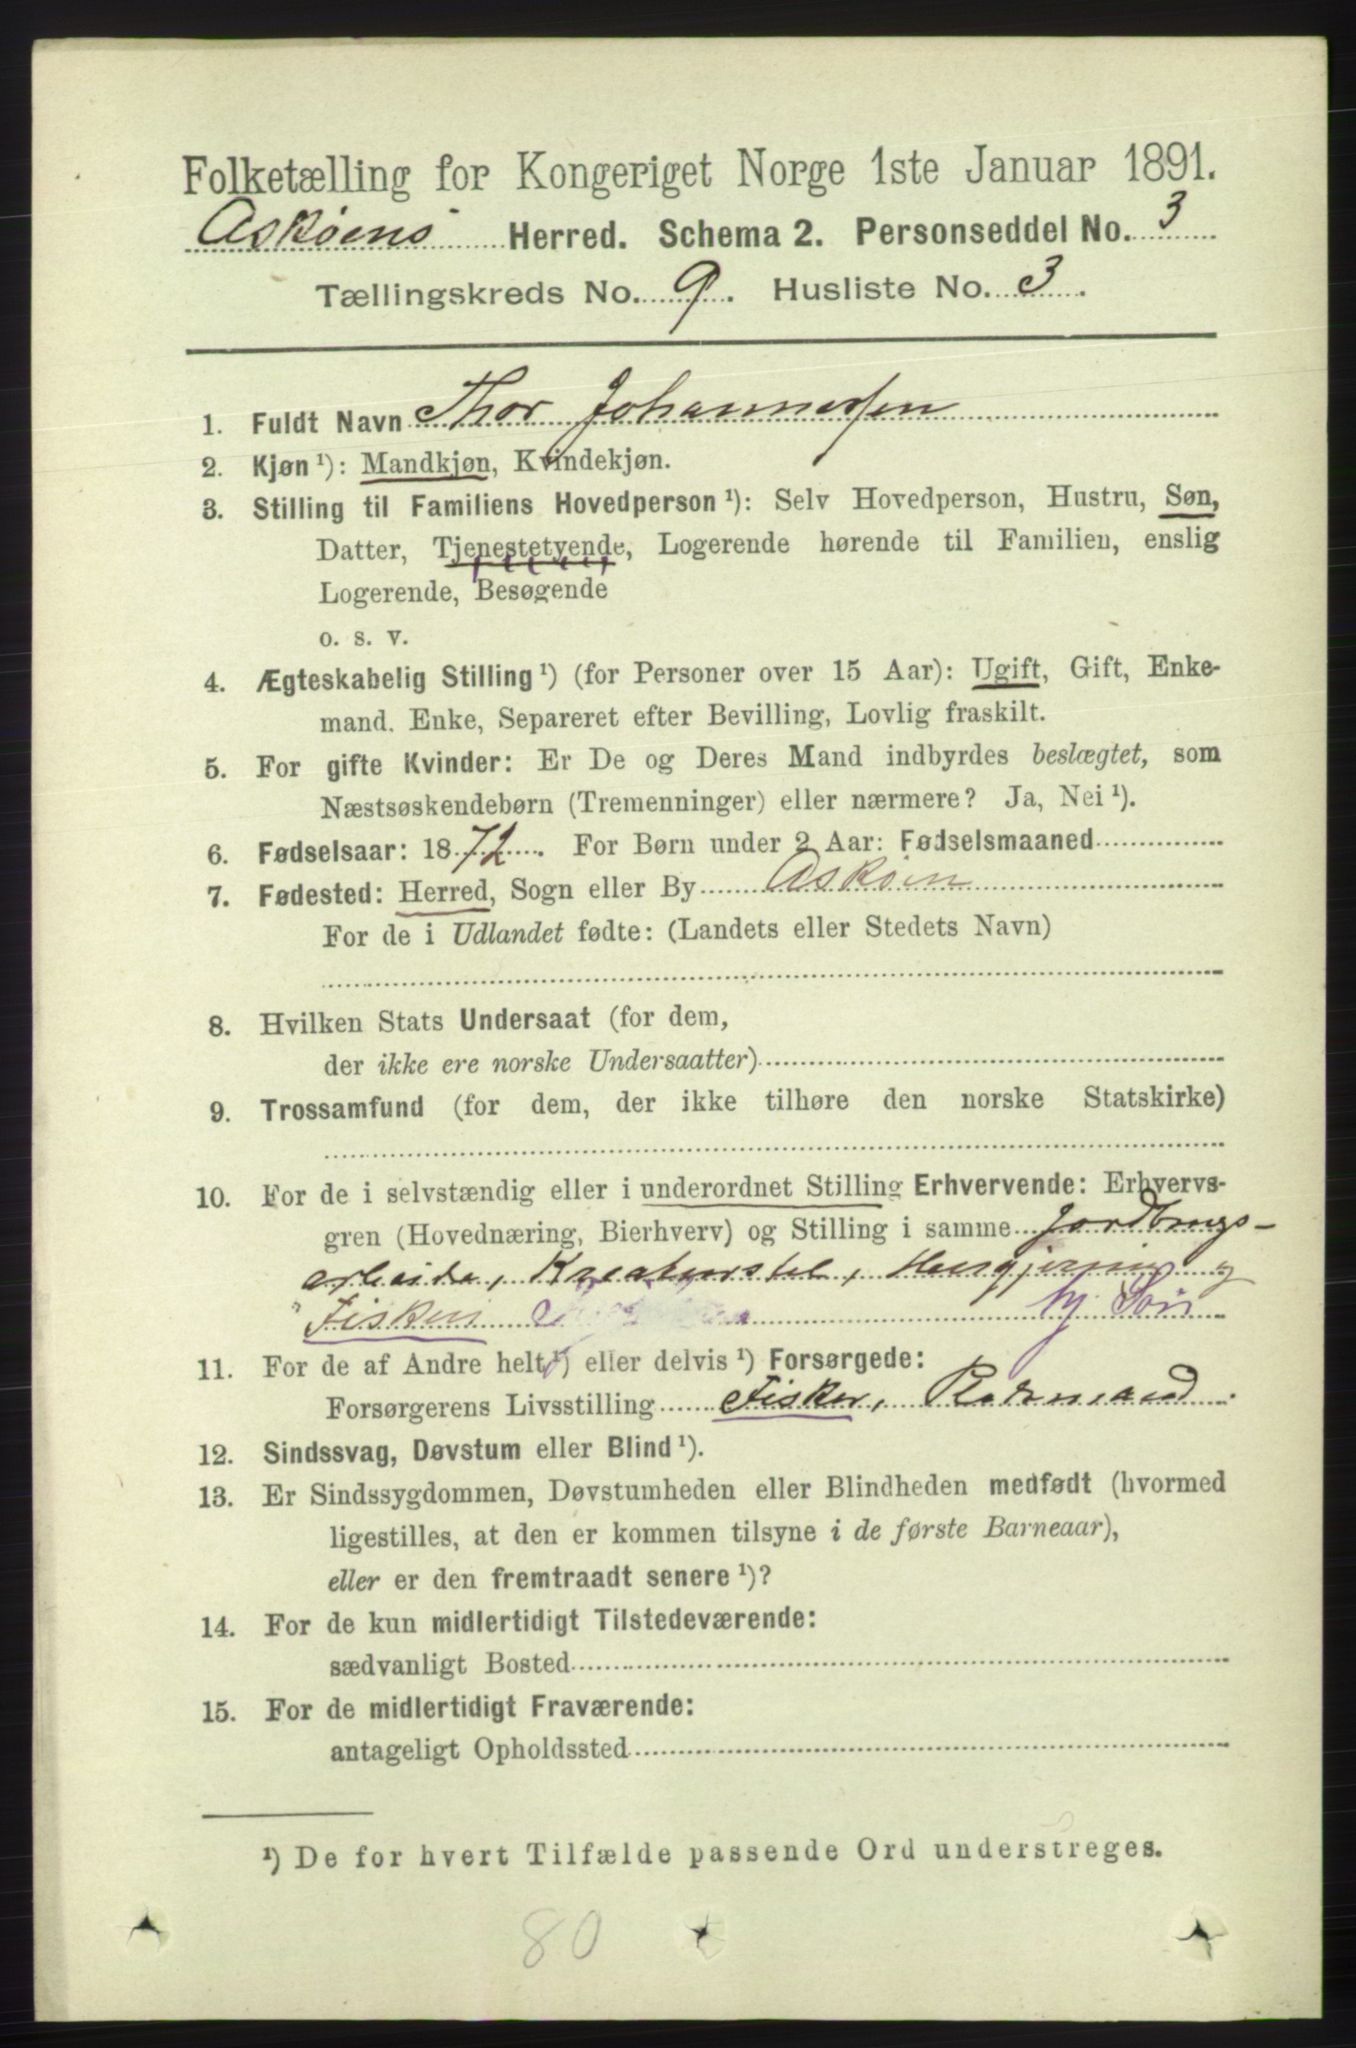 Folketælling for Kongeriget Norge 1ste Januar 1891.
Askøens Herred. Schema 2. Personseddel No. 3
Tællingskreds No. 9. Husliste No. 3.
1. Fuldt Navn Thor Johannessen
2. Kjøn ¹): Mandkjøn, Kvindekjøn.
3. Stilling til Familiens Hovedperson ¹): Selv Hovedperson, Hustru, Søn,
Datter, Tjenestetyende, Logerende hørende til Familien, enslig
Logerende, Besøgende
o. s. v.
4. Ægteskabelig Stilling ¹) (for Personer over 15 Aar): Ugift, Gift, Enke-
mand. Enke, Separeret efter Bevilling, Lovlig fraskilt.
5. For gifte Kvinder: Er De og Deres Mand indbyrdes beslægtet, som
Næstsøskendebørn (Tremenninger) eller nærmere? Ja, Nei ¹).
6. Fødselsaar: 1872. For Børn under 2 Aar: Fødselsmaaned
7. Fødested: Herred, Sogn eller By Askøen
For de i Udlandet fødte: (Landets eller Stedets Navn)
8. Hvilken Stats Undersaat (for dem,
der ikke ere norske Undersaatter)
9. Trossamfund (for dem, der ikke tilhøre den norske Statskirke)
10. For de i selvstændig eller i underordnet Stilling Erhvervende: Erhvervs-
gren (Hovednæring, Bierhverv) og Stilling i samme Jordbrugs-
arbeide, Kreaturstel, Husgjerning og
Fiskeri hj. Søn
11. For de af Andre helt ¹) eller delvis ¹) Forsørgede:
Forsørgerens Livsstilling Fisker,
12. Sindssvag, Døvstum eller Blind ¹).
13. Er Sindssygdommen, Døvstumheden eller Blindheden medfødt (hvormed
ligestilles, at den er kommen tilsyne i de første Barneaar),
eller er den fremtraadt senere ¹)?
14. For de kun midlertidigt Tilstedeværende:
sædvanligt Bosted
15. For de midlertidigt Fraværende:
antageligt Opholdssted
¹) De for hvert Tilfælde passende Ord understreges.
80